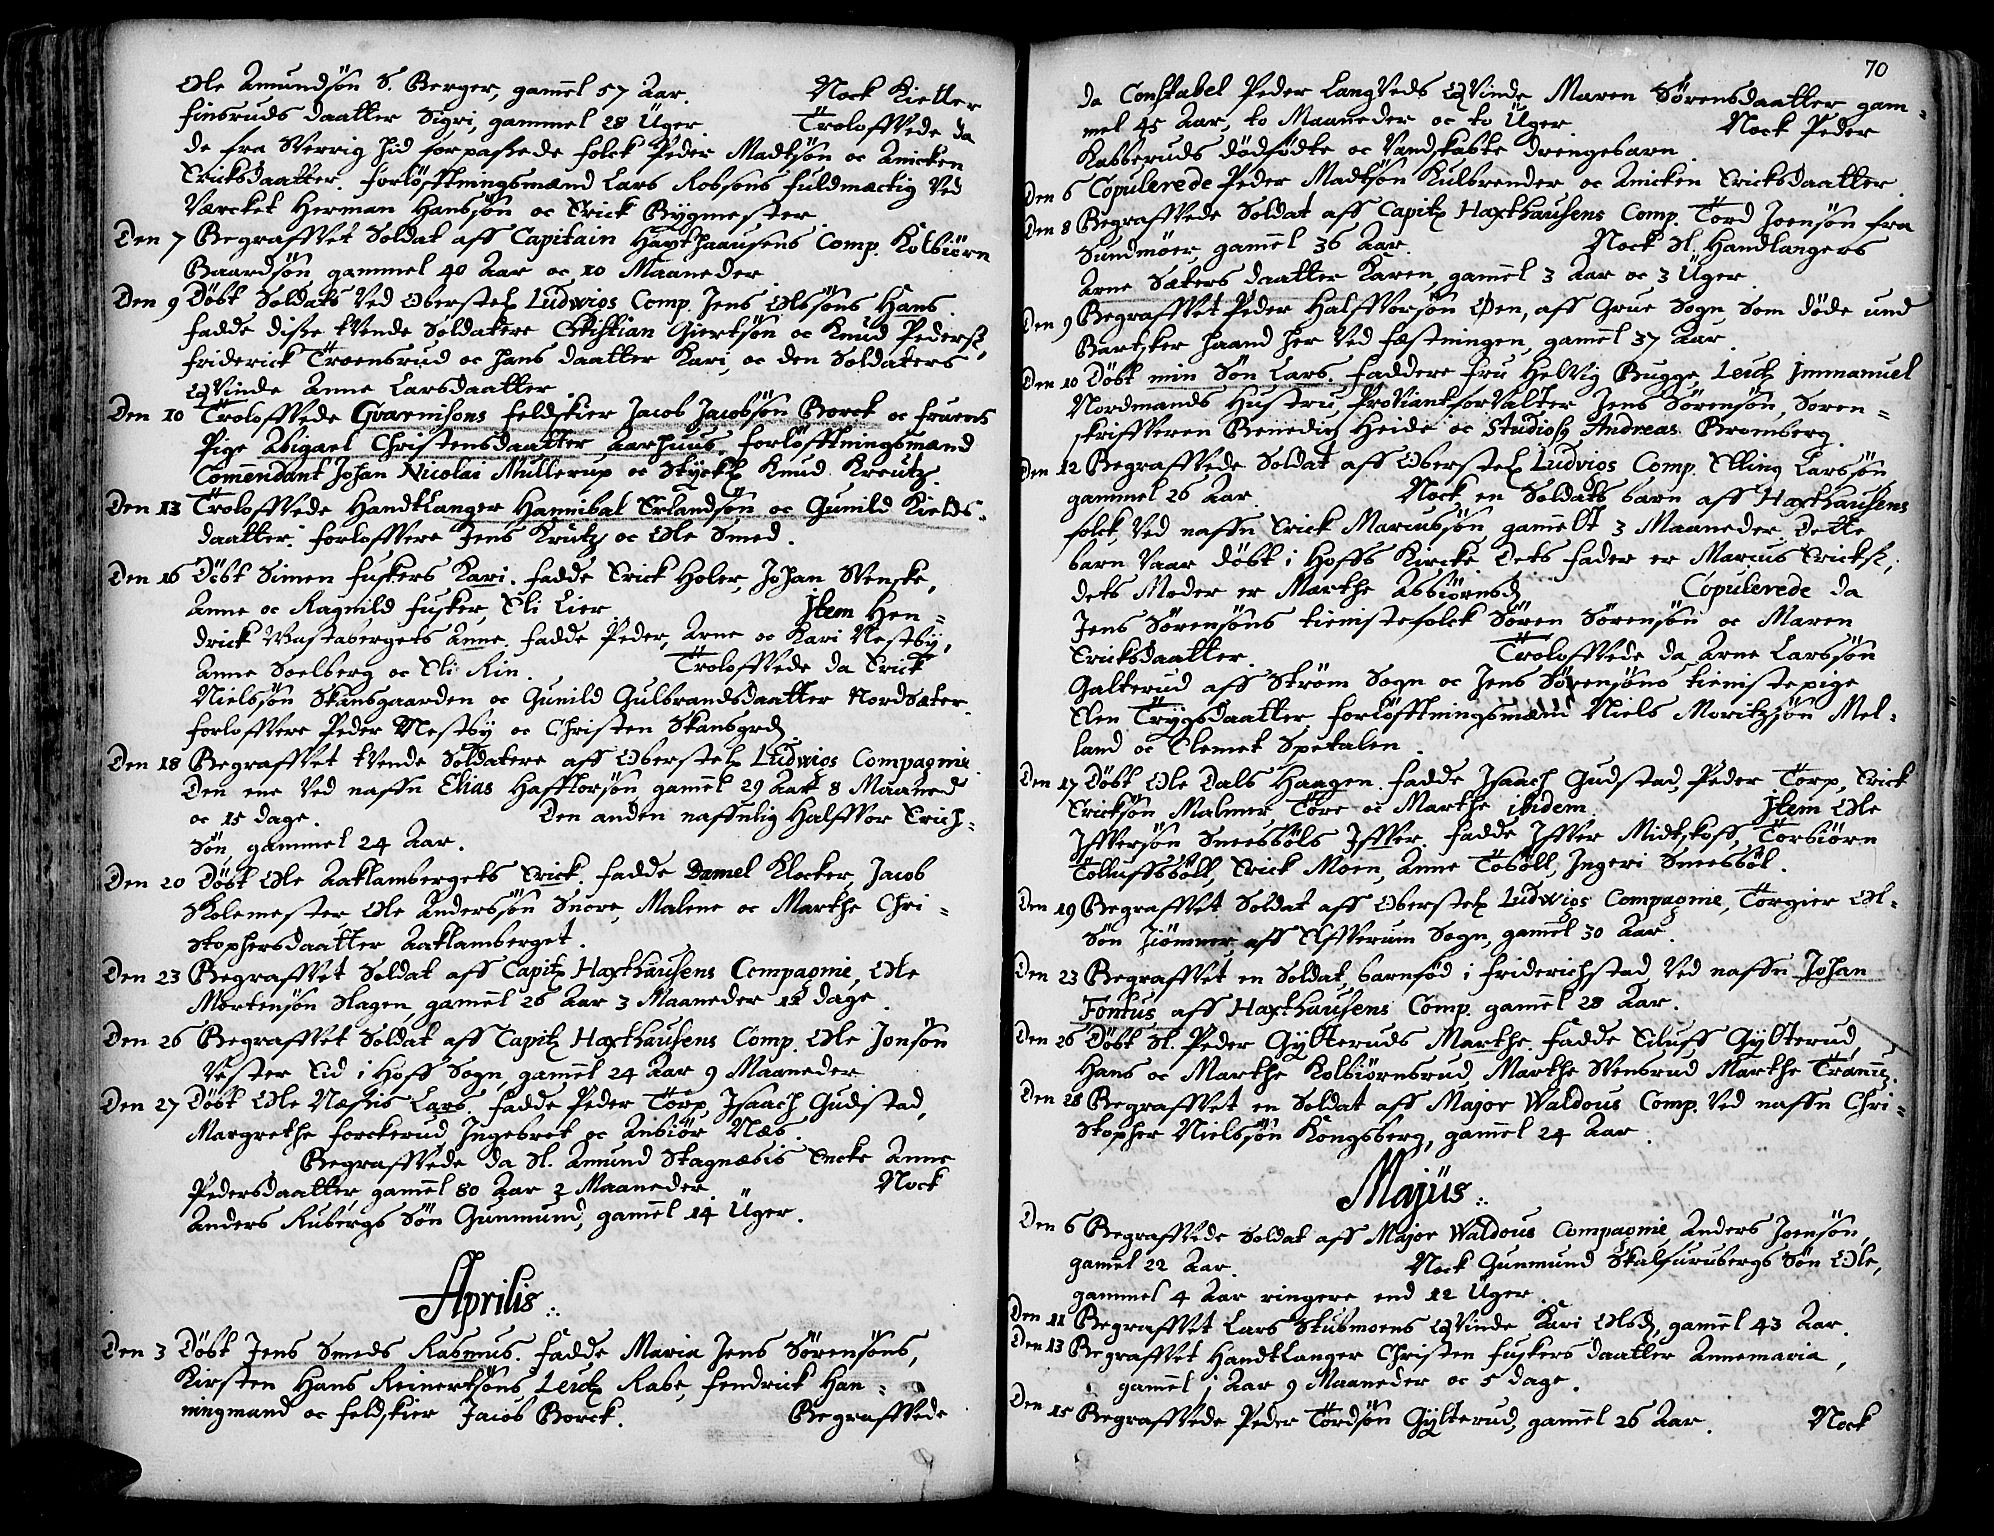 Ole Amundsön S. Berger, gam̄el 57 Aar. Nock Kietter
finsruds daatter Sigri, gammel 28 Üger. Trolofvede da
de fra Sverrig hid forpassede folck Peder Madtsön oc Anicken
Ericksdaatter. forlöfftningsmænd Lars Robsons fuldmæctig ved
Værcket Herman Hanssön oc Erick Bÿgmester.
Den 7 Begraffvet Soldat aff Capitain Haxthaausens Comp. Kolbiörn
Baardsön gammel 40 Aar oc 10 Maaneder.
Den 9 Döbt Soldats ved Oberstel Ludwigs Comp. Jens Olssöns Hans.
fadde disse tvende Soldatere Christian Giertsön oc Knud Peders
friderick Troensrud oc hans daatter Kari, oc den Soldaters
Qvinde Anne Larsdaatter.
Den 10 Trolofvede Gvarnisons feldskier Jacob Jacobsön Borck oc fruens
Pige Abigael Christensdaatter Aarhuus. forlöfftningsmænd
Com̄endant Johan Nicolai Müllerup oc Stÿck Knud Kreutz.
Den 13 Trolofvede Handtlanger Hannibal Erlandsön oc Gunild Kields-
daatter. forloffvere Jens Krutz oc Ole Smed.
Den 16 Döbt Simen fuskers Kari. fadde Erick Holer, Johan Svenske,
Anne oc Ragnild fusker, Eli Lier. Jtem Hen=
drick Mastabergets Anne. fadde Peder, Arne oc Kari Nestbÿ,
Anne Soelberg oc Eli Rin. Trolofvede da Erick
Nielssön Skansgaarden oc Gunild Gulbrandsdaatter Nordsæter.
forloffvere Peder Nestbÿ oc Christen Skansgrd.
Den 18 Begraffvet tvende Soldatere aff Oberstel Ludwigs Compagnie.
Den ene ved naffn Elias Hafftorsön gam̄el 29 Aar 8 Maaned
oc 15 dage. Den anden naffnlig Halffvor Erich=
sön gammel 24 Aar.
Den 20 Döbt Ole Aaklambergets Erick, fadde Daniel Klocker, Jacob
Skolemester, Ole Anderssön Snore, Malene oc Marthe Chri=
stophersdaatter Aaklamberget.
Den 23 Begraffvet Soldat aff Capit Haxthausens Compagnie, Ole
Mortensön Slagen, gam̄el 26 Aar 3 Maaneder 12 dage.
Den 26 Begraffvet Soldat aff Capit Haxthausens Comp. Ole Jonsön
Vester Eid i Hoff Sogn, gam̄el 24 Aar 9 Maaneder
Den 27 Döbt Ole Næssis Lars. fadde Peder Torp, Isaach Gudstad,
Margrethe forckerud, Ingebret oc Anbiör Næs.
Begraffvede da Sl. Amund Stagnæsis Encke Anne
Pedersdaatter, gam̄el 80 Aar 2 Maaneder. Nock
Anders Rubergs Sön Gunmund, gam̄el 14 Üger.
Aprilis.
Den 3 Döbt Jens Smeds Rasmus. fadde Maria Jens Sörensöns,
Kirsten Hans Reinertsöns, Leut Rabe, fendrick Han=
ningmand oc feldskier Jacob Borck. Begraffvede
70
da Constabel Peder Langveds Qvinde Maren Sörensdaatter gam=
mel 45 Aar, to Maaneder oc to Üger. Nock Peder
Kabberuds dödfödte oc vanskabte drengebarn.
Den 6 Copulerede Peder Madtsön Kulbrender oc Anicken Ericksdaatter.
Den 8 Begraffvede Soldat aff Capit Haxthausens Comp. Tord Joensön fra
Sundmöer, gam̄el 36 Aar. Nock Sl. Handlangers
Arne Sæters daatter Karen, gam̄el 3 Aar oc 3 Üger.
Den 9 Begraffvet Peder Halffvorsön Öen, aff Grue Sogn, Som döde und
Bartsker haand her ved fæstningen, gam̄el 37 Aar.
Den 10 Döbt min Sön Lars. faddere fru Helvig Bugge, Leut Jmmanuel
Nordmands Hustru, Proviantforvalter Jens Sörensön, Soren=
skriffveren Benedict Heide oc Studios Andreas Bromberg.
Den 12 Begraffvede Soldat aff Oberstel Ludvigs Comp. Elling Larssön
gammel 26 Aar. Nock en Soldats barn aff Haxthausens
folck, ved naffn Erick Marcussön, gam̄elt 3 Maaneder. Dette
barn vaar döbt i Hoffs Kircke. Dets fader er Marcus Ericks,
dets Moder er Marthe Asbiörnsd. Copulerede da
Jens Sörensöns tienistefolck Sören Sörensön oc Maren
Ericksdaatter. Trolofvede da Arne Larssön
Galterud aff Ström Sogn oc Jens Sörensöns tienistepige
Elen Trÿgsdaatter. forlöfftningsmænd Niels Moritzsön Mel-
land oc Clemet Spetalen.
Den 17 Döbt Ole Dals Haagen. fadde Isaach Gudstad, Peder Torp, Erick
Ericksön Malmer, Tore oc Marthe ibidem. Jtem Ole
Iffversön Sneesböls Iffver. fadde Iffver Midtskoff, Torbiörn
Tolluffsböll, Erick Moen, Anne Toböll, Ingeri Sneesböl.
Den 19 Begraffvet Soldat aff Oberstel Ludwigs Compagnie, Törgier Ol-
sön Hiömner, aff Elffverum Sogn, gam̄el 30 Aar.
Den 23 Begraffvet en Soldat, barnföd i friderichstad, ved naffn Johan
Fontus aff Haxthausens Comp. gam̄el 28 Aar.
Den 26 Döbt Sl. Peder Gÿlteruds Marthe. fadde Eiluff Gÿlterud,
Hans oc Marthe Kolbiörnsrud, Marthe Svensrud, Marthe
Den 28 Begraffvet en Soldat aff Major Waldous Comp. ved naffn Chri=
stopher Nielssön Kongsberg, gam̄el 24 Aar.
Majüs.
Den 6 Begraffvede Soldat aff Major Waldous Compagnie, Anders Joensön,
gam̄el 22 Aar. Nock Gunmund Skalfurubergs Sön Ole,
gammel 4 Aar ringere end 12 Üger.
Den 11 Begraffvet Lars Stubmoens Qvinde Kari Olsd, gam̄el 43 Aar.
Den 13 Begraffvet Handtlanger Christen fuskers daatter Annemaria,
gam̄el j Aar 9 Maaneder oc 5 dage.
Den 15 Begraffvede Peder Tordsön Gÿlterud, gam̄el 26 Aar. Nock